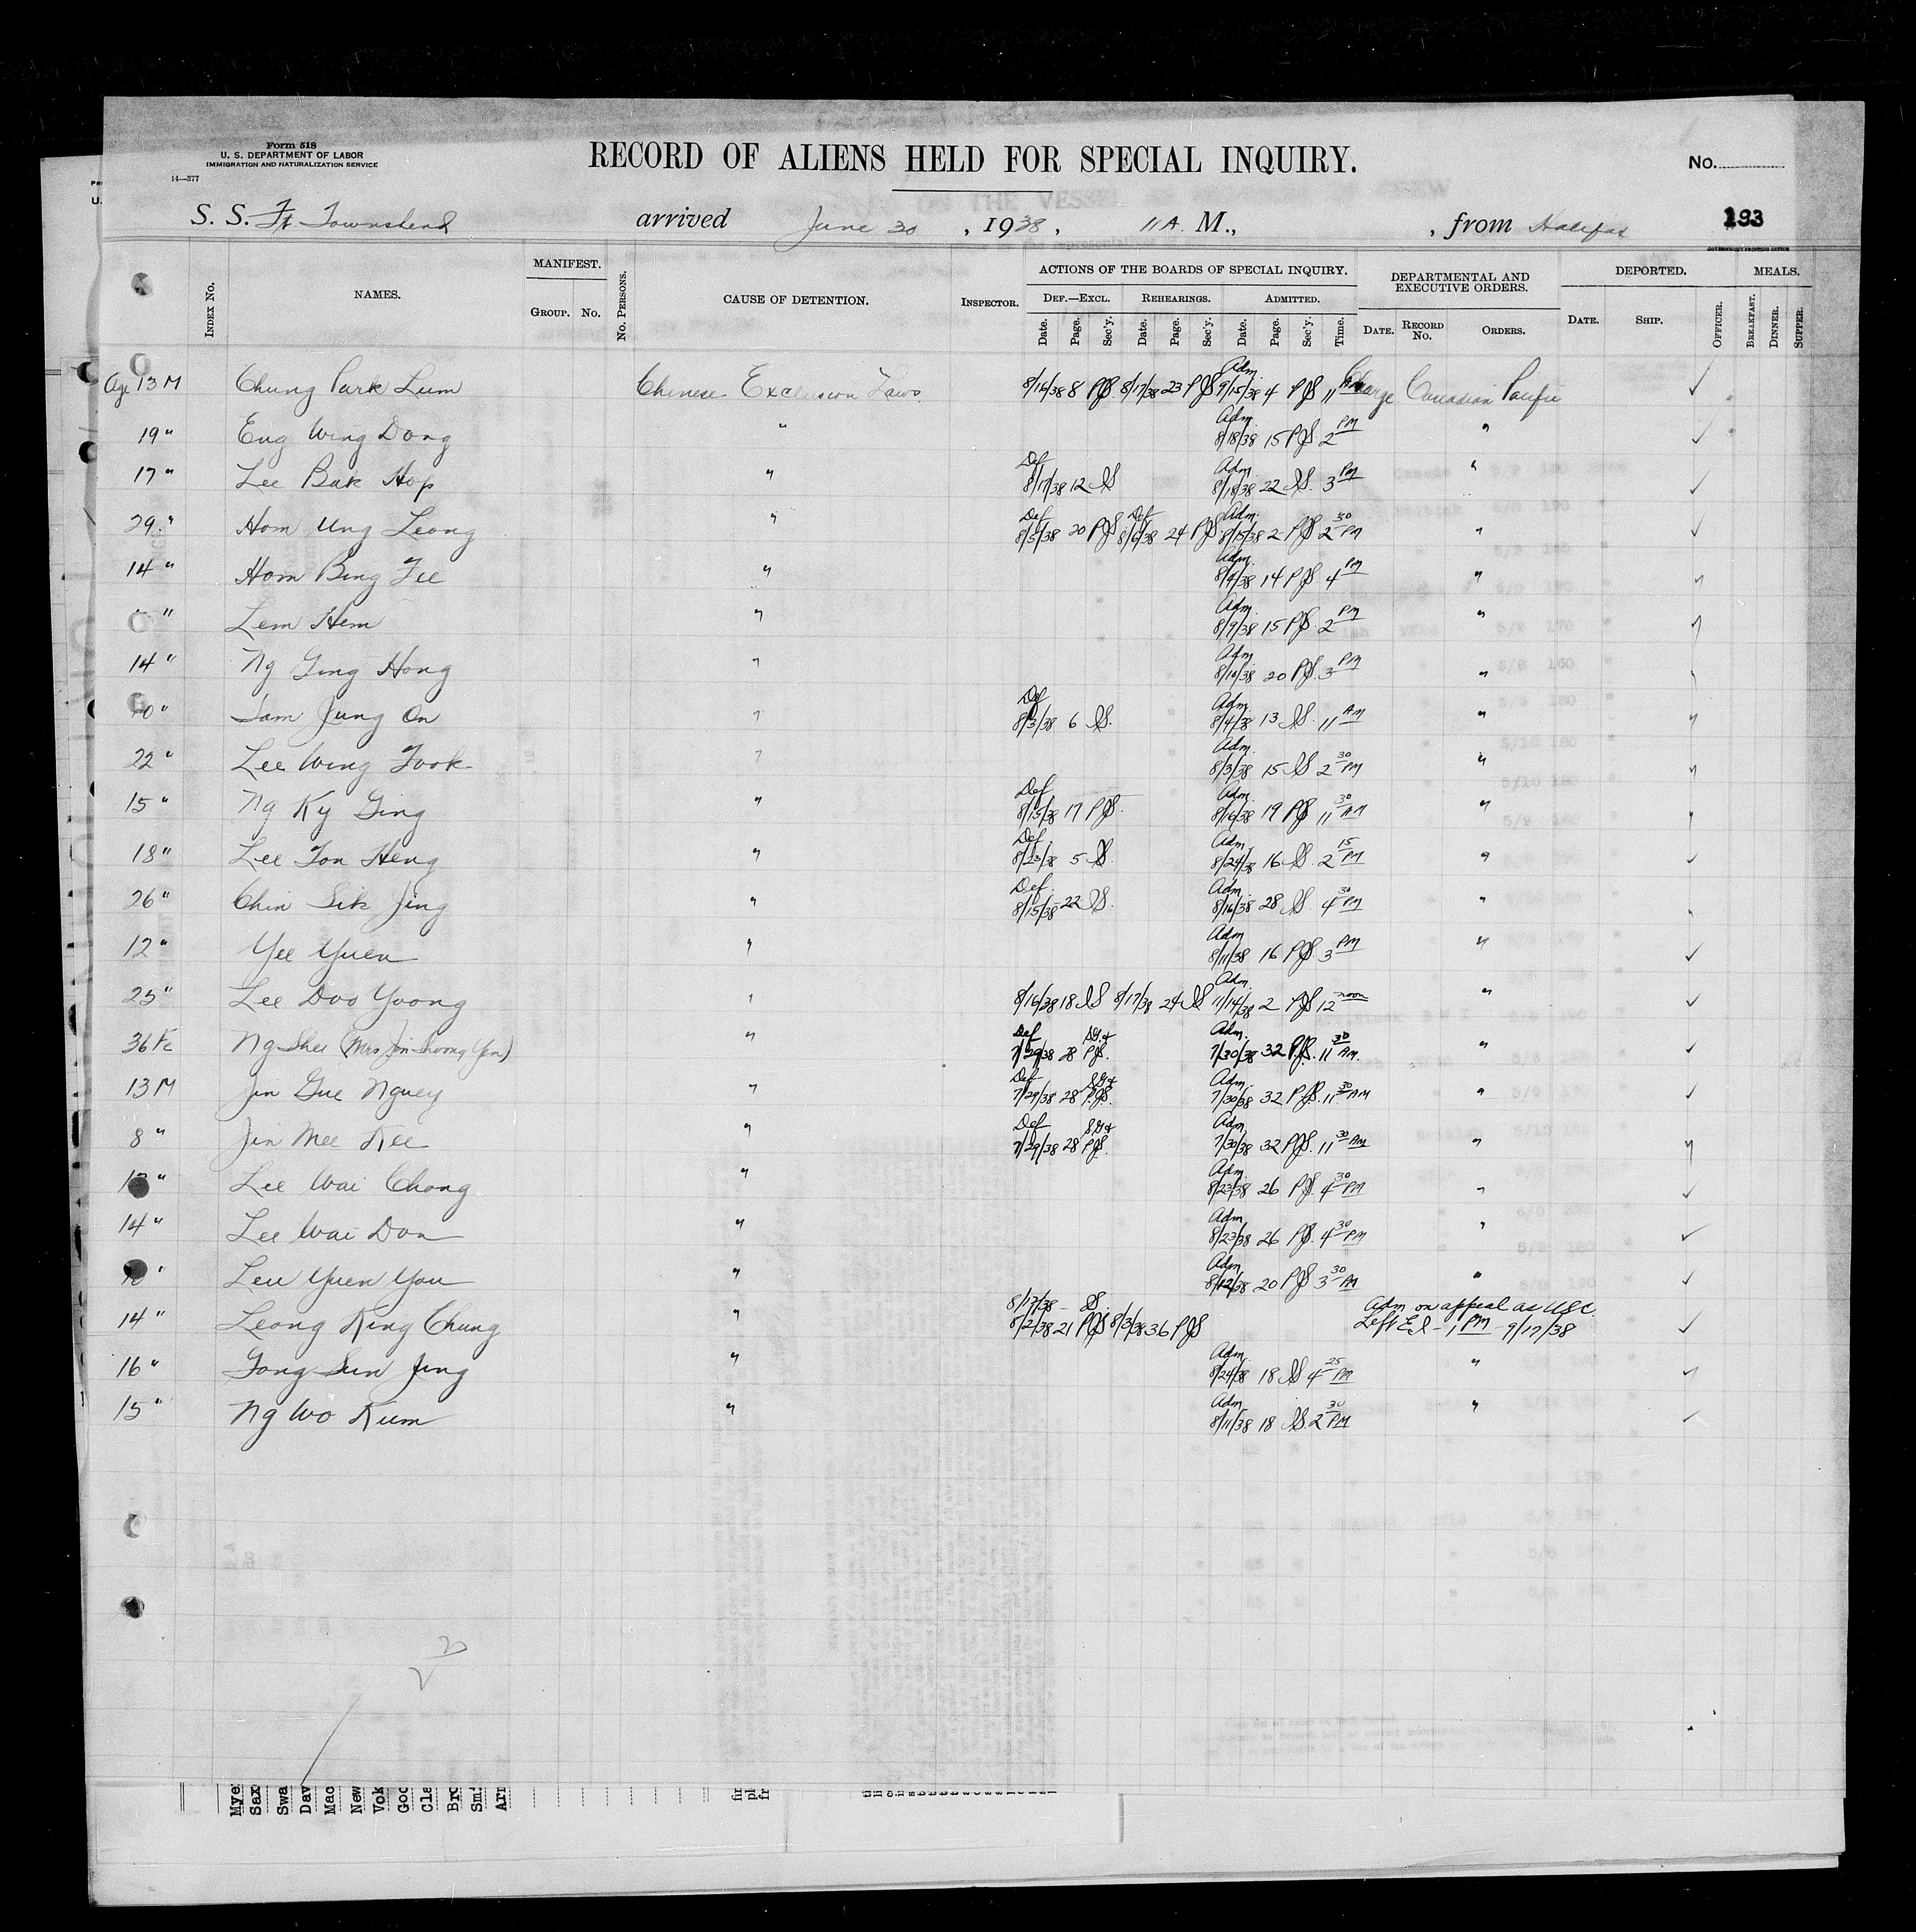 Form 518
U. S. DEPARTMENT OF LABOR
IMMIGRATION AND NATURALIZATION SERVICE
14—377
RECORD OF ALIENS HELD FOR SPECIAL INQUIRY.
No.
S. S. Ft. Townshend arrived June 30, 1938, 11 A. M., , from Halifax
193
INDEX No. NAMES. MANIFEST. GROUP. No. No. PERSONS. CAUSE OF DETENTION. INSPECTOR. ACTIONS OF THE BOARDS OF SPECIAL INQUIRY. DEPARTMENTAL AND EXECUTIVE ORDERS. DEPORTED. MEALS.
DEF.—EXCL. REHEARINGS. ADMITTED.
Date. Page. Sec'y. Date. Page. Sec'y. Date. Page. Sec'y. Time. DATE. RECORD No. ORDERS. DATE. SHIP. OFFICER. BREAKFAST. DINNER. SUPPER.
Age 13 M Chung Park Lum Chinese Exclusion Laws 8/16/38 8 PJS 8/17/38 23 PJS Adm. 9/15/38 4 PJS 11 Charge Canadian Pacific ✓
19 " Eng Wing Dong " Adm. 8/18/38 15 PJS 2 PM " ✓
17 " Lee Bak Hop " Def 8/17/38 12 Adm. 8/18/38 22 3 PM " ✓
29 " Hom Ung Leong " Def 8/5/38 20 PJS Def 8/6/38 24 PJS Adm. 8/15/38 2 PJS 2 30 PM " ✓
14 " Hom Bing Fee " Adm. 8/9/38 14 PJS 4 PM "
" Lem Hem " Adm. 8/9/38 15 PJS 2 PM "
14 " Ng Ging Hong " Adm. 8/10/38 20 PJS 3 PM "
" Jung On " Def 8/3/38 6 Adm. 8/4/38 13 11 AM "
22 " Lee Wing Took " Adm. 8/3/38 15 2 30 PM "
15 " Ng Ky Ging " Def 8/15/38 17 PJS Adm. 8/16/38 19 PJS 11 30 AM "
18 " Lee Ton Heng " Def 8/23/38 5 Adm. 8/24/38 16 2 15 PM " ✓
26 " Chin Sik Jing " Def. 8/15/38 22 Adm. 8/16/38 28 4 30 PM "
12 " Yee Yuen " Adm. 8/11/38 16 PJS 3 PM " ✓
25 " Lee Doo Yoong " 8/16/38 18 8/17/38 24 Adm. 11/14/38 2 PJS 12 noon " ✓
36 Fe Ng Shee (Mrs Jin Yen) " Def 7/29/38 28 PJS. Adm. 7/30/38 32 PJS. 11 30 AM. " ✓
13 M Jin Gue Nguey " Def 7/29/38 28 PJS. Adm. 7/30/38 32 PJS. 11 30 AM " ✓
8 " Jin Mee Kee " Def 7/29/38 28 PJS. Adm. 7/30/38 32 PJS. 11 30 AM "
" Lee Wai Chong " Adm. 8/23/38 26 PJS. 4 30 PM " ✓
14 " Lee Wai Don " Adm. 8/23/38 26 PJS. 4 30 PM " ✓
" Leu Yuen You " Adm. 8/12/38 20 PJS 3 30 " ✓
14 " Leong King Chung " 8/17/38 8/2/38 21 PJS 8/3/38 36 PJS Adm on appeal as USC Left E I - 1 PM - 9/17/38 ✓
16 " Tong Sun Jing " Adm. 8/24/38 18 4 25 PM "
15 " Ng Wo Kum " Adm. 8/11/38 18 2 30 PM " ✓
Mye
Sax
Swa
Dav
Mac
New
Vok
Goo
Cla
Bro
Smi
Arn